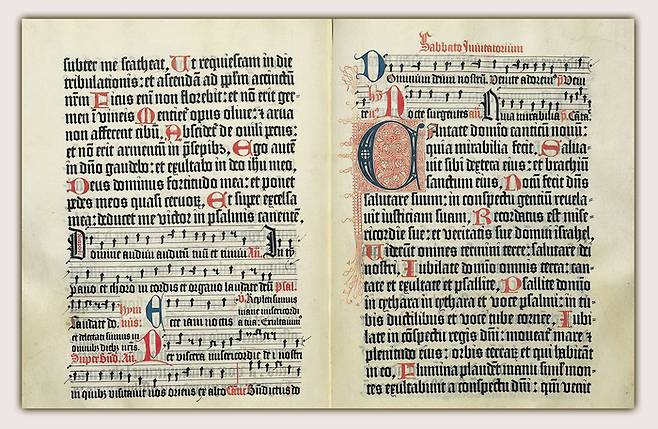 subter me scateat, Ut requiescam in die
tribulationis: et ascendā ad pplm accinctū
nr̄m Ficus enī non florebit: et nō erit ger-
men ī vineis Mentiet' opus olive: et arva
non afferent cibū, Abscidet' de ovili pecus:
et nō erit armentū in p̄sepibꝫ, Ego autē
in dn̄o gaudebo: et exultabo in deo ihu meo,
Deus dominus fortitudo mea: et ponet
pedes meos quasi cervoꝝ, Et super excelsa
mea: deducet me victor in psalmis canentē,
Domine audivi auditū tuū et timui An̄. In ty
pano et choro in cordis et organo laudate deū Psal.
hym
Laudate do. nus:
Ecce iam noctis
Super Bn̄d. An̄
Per viscera misericordie dei nostri
in quibꝫ visitavit nos oriens ex alto Canc̄ Bn̄dictus do
Sabbato Invitatorium
Dominum deum nostrū. Venite adorem' p̄ Veni
Nocte surgentes an̄. Quia mirabilia p̄ Canta.
Cantate domino canticū novū:
quia mirabilia fecit, Salva-
vit sibi dextera eius: et brachiū
sanctum eius, Notum fecit dn̄s
salutare suum: in conspectu gentiū revela-
vit iusticiam suam, Recordatus est mise-
ricordie sue: et veritatis sue domui israhel,
Viderūt omnes termini terre: salutare dei
nostri, Iubilate domino omnis terra: can-
tate et exultate et psallite, Psallite domino
in cythara in cythara et voce psalmi: in tu-
bis ductilibus et voce tube cornee, Iubi-
late in cōspectu regis dn̄i: moveat' mare et
plenitudo eius: orbis terraꝝ et qui habitāt
in eo, Flumina plaudēt manu simĺ mon-
tes exultabunt a conspectu dn̄i: qm̄ venit